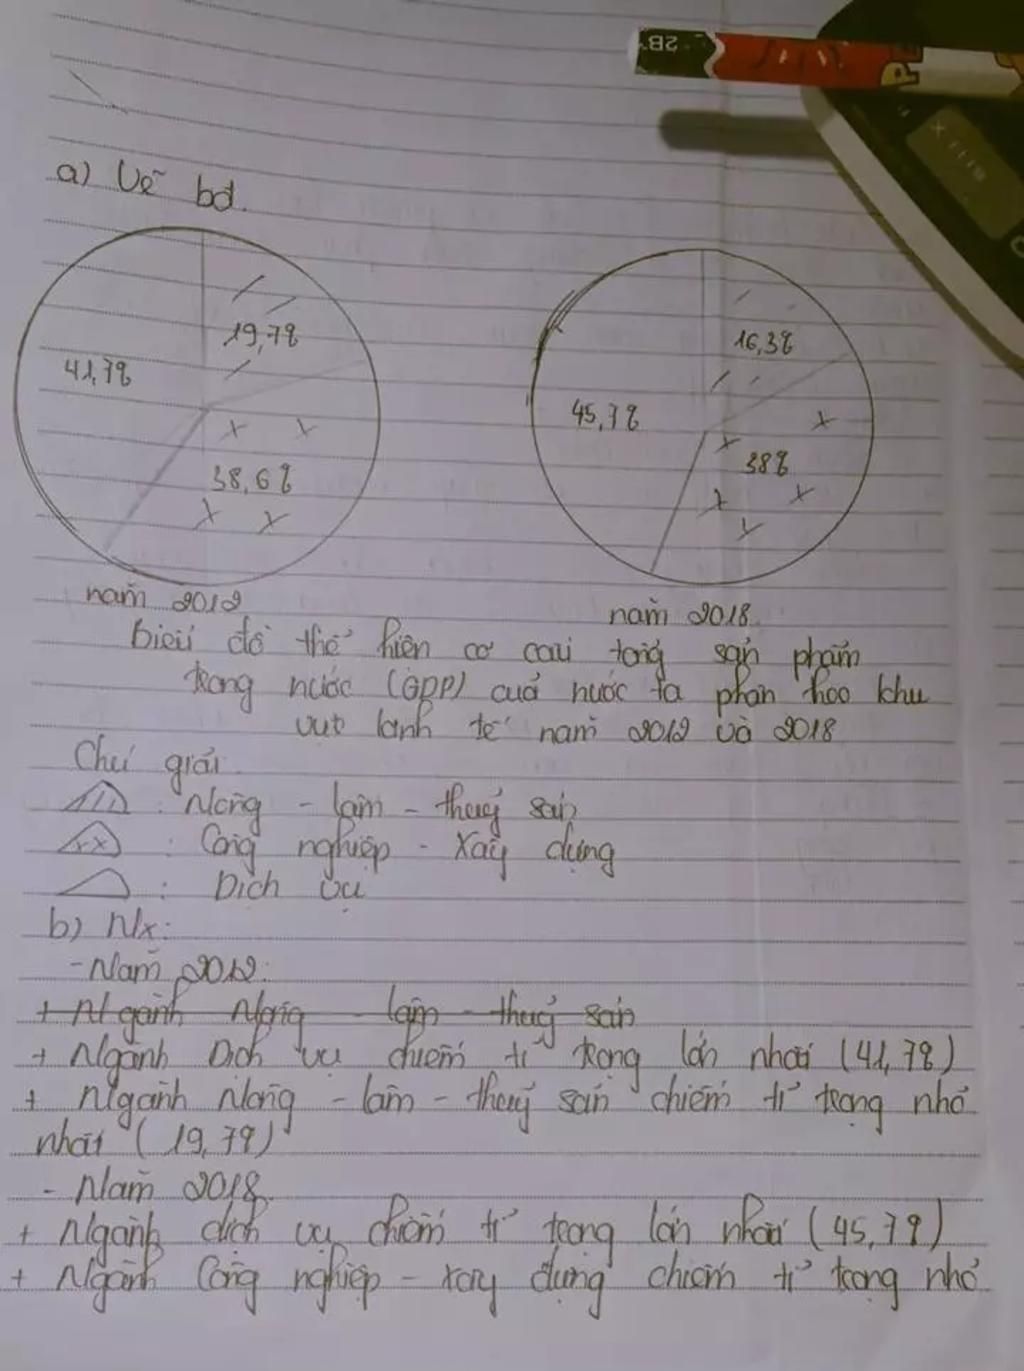 2B
a) Vẽ bđ.
19,7%
41,7%
38,6%
16,3%
45,7%
38%
năm 2012
năm 2018
biểu đồ thể hiện cơ cấu tổng sản phẩm
trong nước (GDP) của nước ta phân theo khu
vực kinh tế năm 2012 và 2018
Chú giải
: Nông - lâm - thuỷ sản
: Công nghiệp - Xây dựng
: Dịch vụ
b) Nx:
- Năm 2012:
+ Ngành Nông - lâm - thuỷ sản
+ Ngành Dịch vụ chiếm tỉ trọng lớn nhất (41,7%)
+ Ngành Nông - lâm - thuỷ sản chiếm tỉ trọng nhỏ
nhất (19,7%)
- Năm 2018
+ Ngành dịch vụ chiếm tỉ trọng lớn nhất (45,7%)
+ Ngành Công nghiệp - xây dựng chiếm tỉ trọng nhỏ